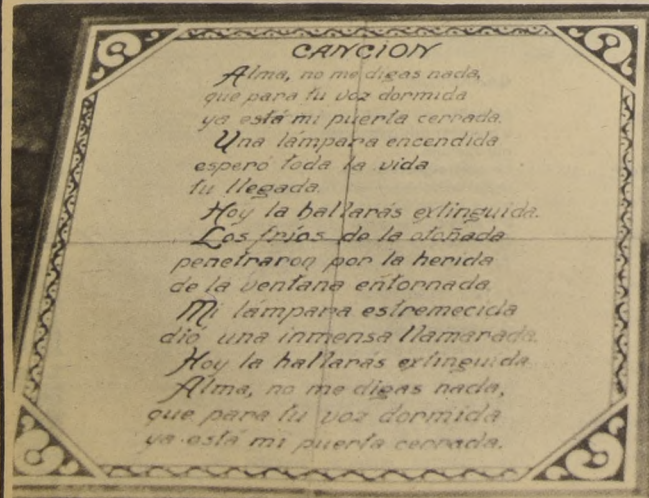 CANCION
Alma, no me digas nada,
que para tu voz dormida
ya está mi puerta cerrada.
Una lámpara encendida
esperó toda la vida
tu llegada.
Hoy la hallarás extinguida.
Los fríos de la otoñada
penetraron por la herida
de la ventana entornada.
Mi lámpara estremecida
dió una inmensa llamarada.
Hoy la hallarás extinguida.
Alma, no me digas nada,
que para tu voz dormida
ya está mi puerta cerrada.